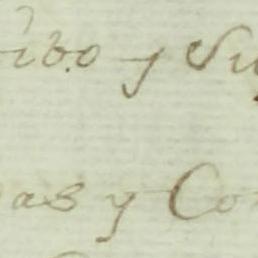 ibo y Su
as y Co